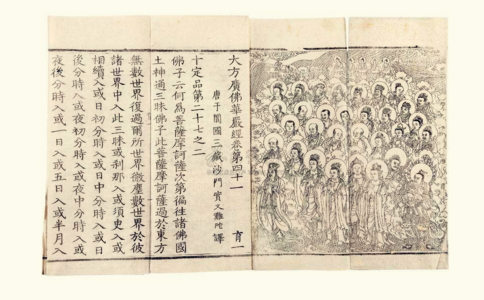 大方廣佛華嚴經卷第四十一　育一
唐于闐國三藏沙門實叉難陀譯
十定品第二十七之二
佛子云何為菩薩摩訶薩次第徧往諸佛國
土神通三昧佛子此菩薩摩訶薩過於東方
無數世界復過爾所世界微塵數世界於彼
諸世界中入此三昧或剎那入或須臾入或
相續入或日初分時入或日中分時入或日
後分時入或夜初分時入或夜中分時入或
夜後分時入或一日入或五日入或半月入